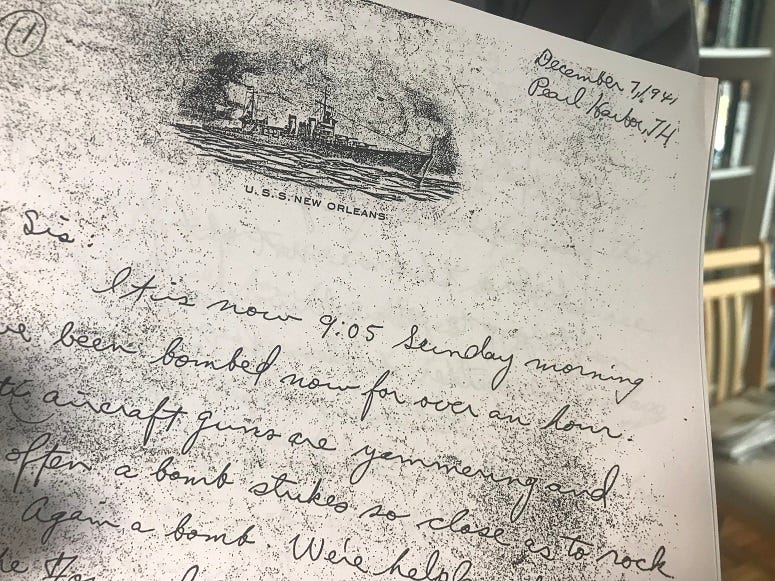 (1)
December 7, 1941
Pearl Harbor, TH
U. S. S. NEW ORLEANS
Sis:
It is now 9:05 Sunday morning
ve been bombed now for over an hour.
aircraft guns are yammering and
often a bomb strikes so close as to rock
Again a bomb. We're help